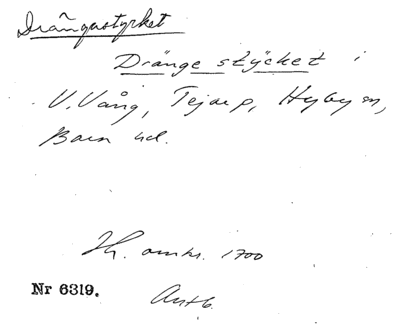 Drängastycket
Dränge stÿcket i
V. Vång, Tejarp, Hyby sn,
Bara hd.
Jh. omkr. 1700
Nr 6319.